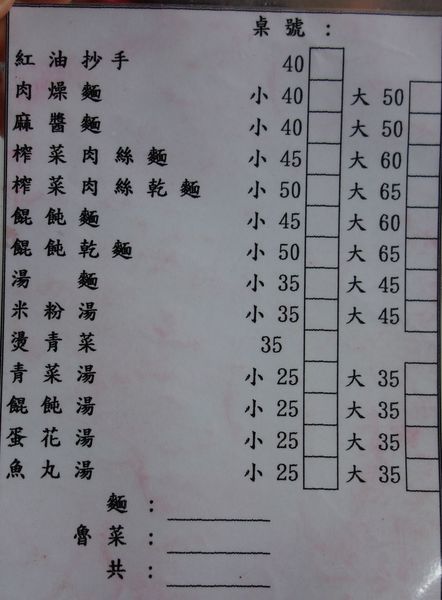 桌號：
紅油抄手 40
肉燥麵 小 40 大 50
麻醬麵 小 40 大 50
榨菜肉絲麵 小 45 大 60
榨菜肉絲乾麵 小 50 大 65
餛飩麵 小 45 大 60
餛飩乾麵 小 50 大 65
湯麵 小 35 大 45
米粉湯 小 35 大 45
燙青菜 35
青菜湯 小 25 大 35
餛飩湯 小 25 大 35
蛋花湯 小 25 大 35
魚丸湯 小 25 大 35
麵：
魯菜：
共：